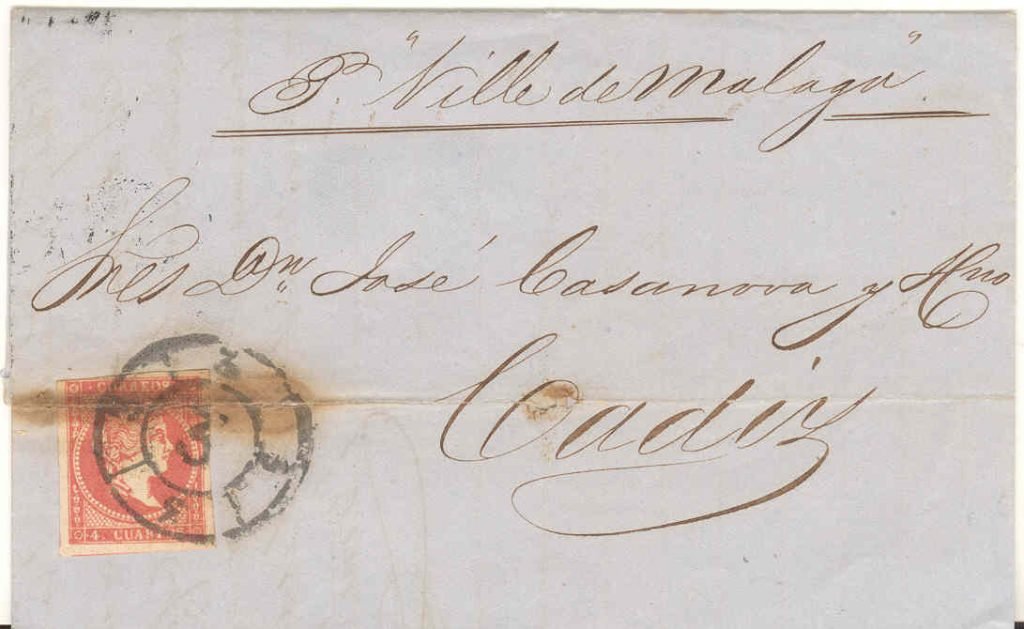 P. "Ville de Malaga"
Sres Dn José Casanova y Hno
Cadiz
CUARTOS
4 CUARTOS